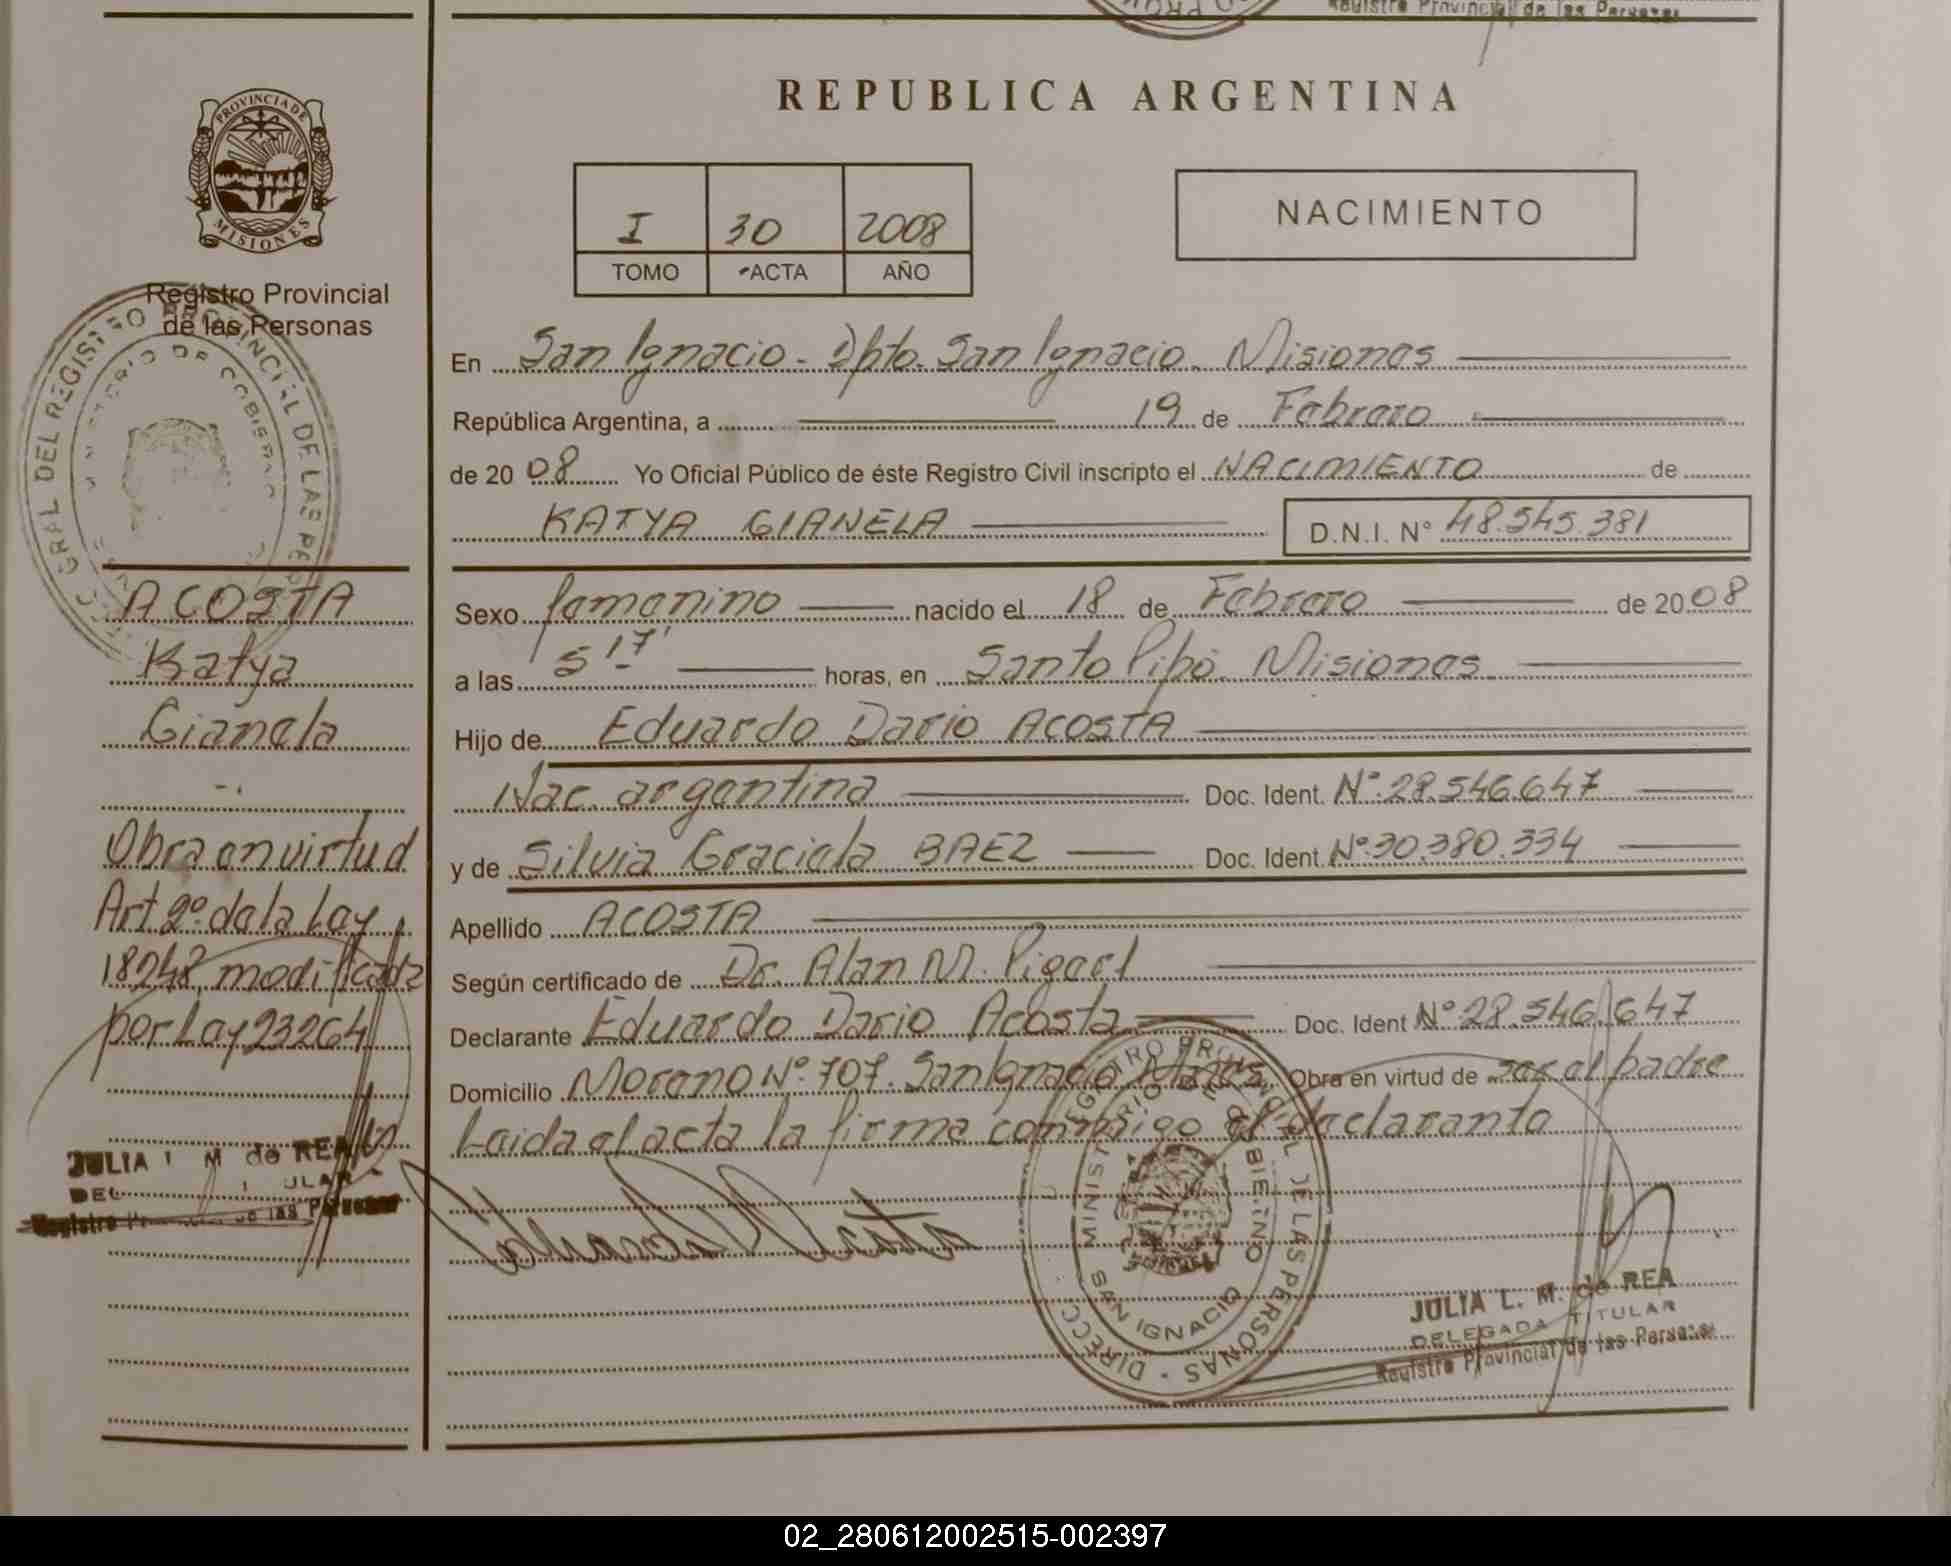 Registro Provincial de las Personas
REPUBLICA ARGENTINA
PROVINCIA DE
MISIONES
Registro Provincial
de las Personas
I 30 2008
TOMO ACTA AÑO
NACIMIENTO
En San Ignacio - Dpto. San Ignacio. Misiones
República Argentina, a 19 de Febrero
de 2008 Yo Oficial Público de éste Registro Civil inscripto el NACIMIENTO de
KATYA GIANELA D.N.I. N° 48.545.381
Sexo femenino nacido el 18 de Febrero de 2008
a las 5 17' horas, en Santo Pipó. Misiones
Hijo de Eduardo Dario ACOSTA
Nac. argentina Doc. Ident. N°.28.546.647
y de Silvia Graciela BAEZ Doc. Ident. N°.30.380.334
Apellido ACOSTA
Según certificado de Dr. Alan M.
Declarante Eduardo Dario Acosta Doc. Ident N°.28.546.647
Domicilio Moreno N°.707. San Ignacio Mnes. Obra en virtud de ser el padre
Leida el acta la firma conmigo el declarante
ACOSTA
Katya
Gianela
Obra en virtud
Art. 2°. de la Ley
18248, modificada
por Ley 23264
JULIA L. M. de REA
DELEGADA TITULAR
Registro Provincial de las Personas
MINISTERIO DE GOBIERNO
SAN IGNACIO
JULIA L. M. de REA
DELEGADA TITULAR
Registro Provincial de las Personas
02_280612002515-002397